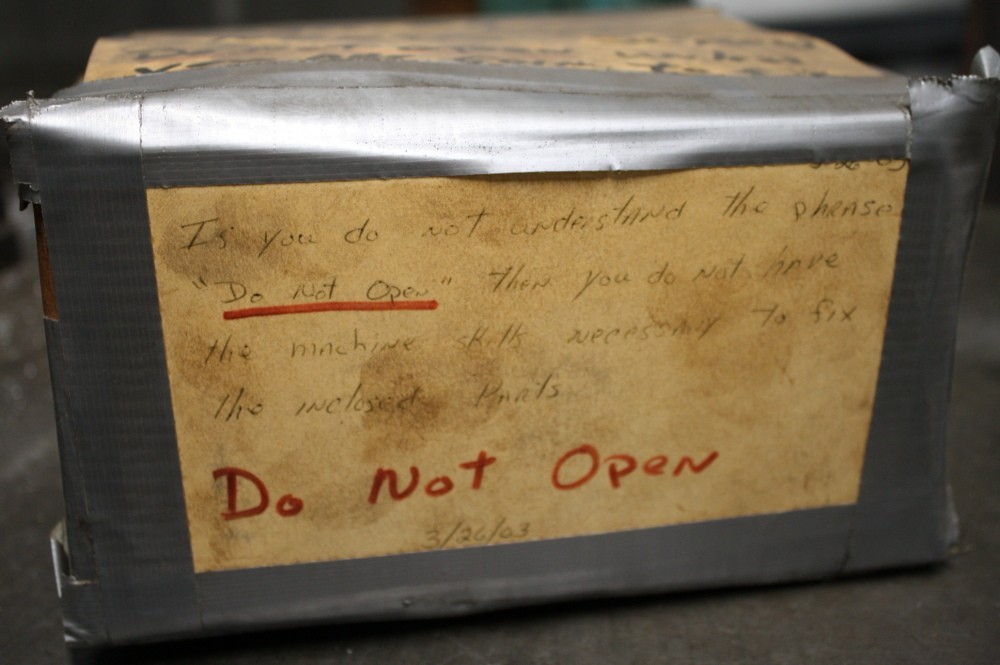 3-26-03
If you do not understand the phrase
"Do Not Open" then you do not have
the machine skills necessary to fix
the inclosed Parts
Do Not Open
3/26/03